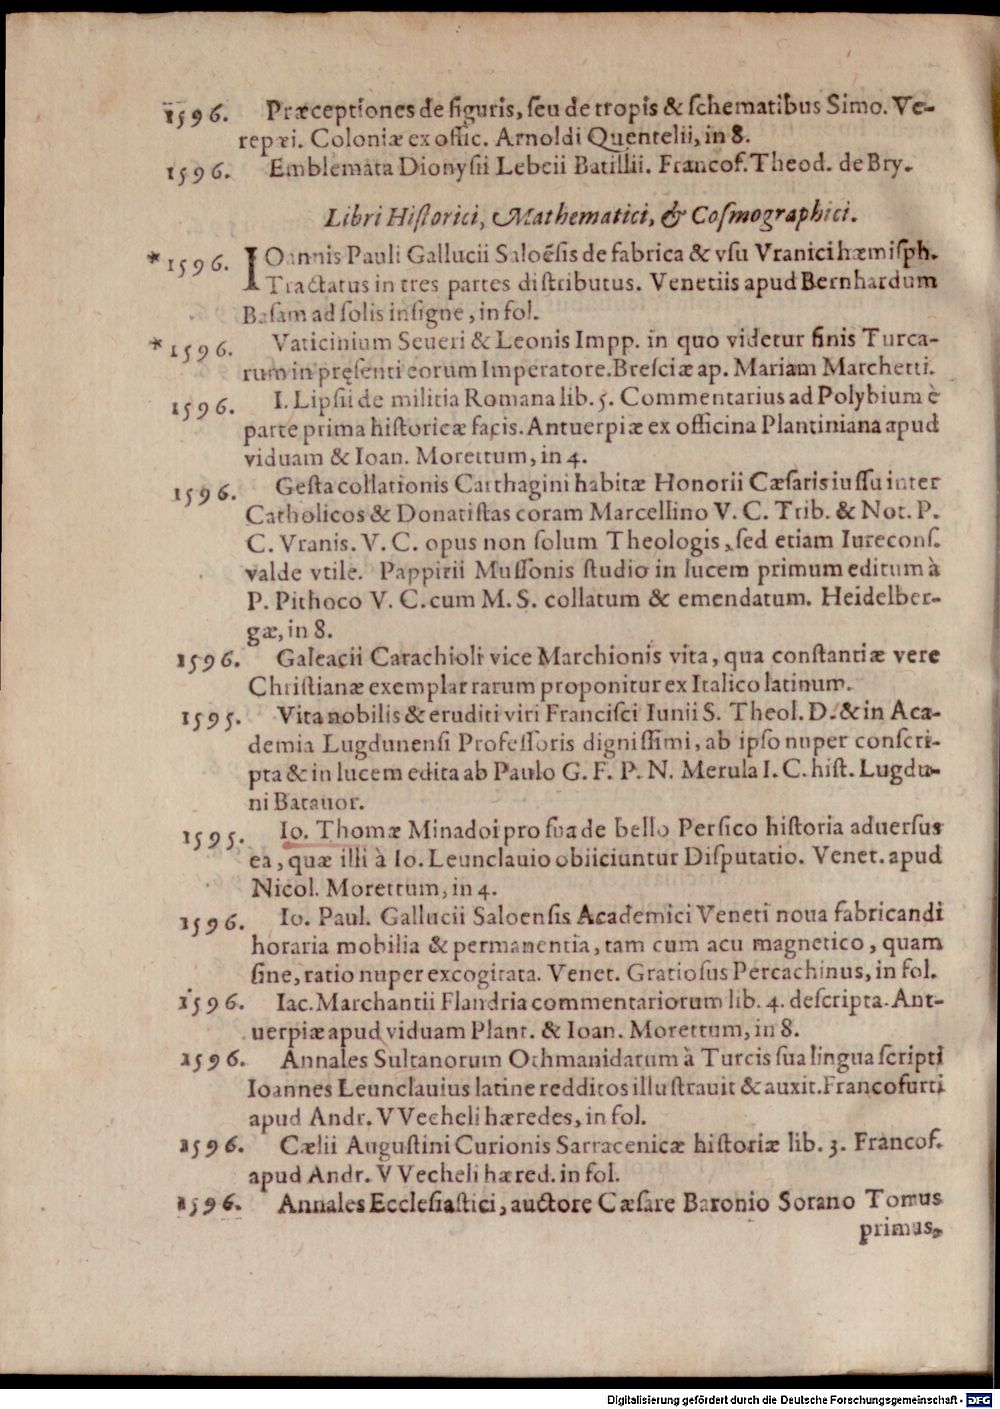 1596. Præceptiones de figuris, ſeu de tropis & ſchematibus Simo. Ve-
repæi. Coloniæ ex offic. Arnoldi Quentelii, in 8.
1596. Emblemata Dionyſii Lebeii Batillii. Francof. Theod. de Bry.
Libri Hiſtorici, Mathematici, & Coſmographici.
*1596. IOannis Pauli Gallucii Saloẽſis de fabrica & vſu Vranici hæmiſph.
Tractatus in tres partes diſtributus. Venetiis apud Bernhardum
Baſam ad ſolis inſigne, in fol.
*1596. Vaticinium Seueri & Leonis Impp. in quo videtur finis Turca-
rum in pręſenti eorum Imperatore. Breſciæ ap. Mariam Marchetti.
1596. I. Lipſii de militia Romana lib. 5. Commentarius ad Polybium è
parte prima hiſtoricæ facis. Antuerpiæ ex officina Plantiniana apud
viduam & Ioan. Morettum, in 4.
1596. Geſta collationis Carthagini habitæ Honorii Cæſaris iuſſu inter
Catholicos & Donatiſtas coram Marcellino V. C. Trib. & Not. P.
C. Vranis. V. C. opus non ſolum Theologis, ſed etiam Iureconſ.
valde vtile. Pappirii Muſſonis ſtudio in lucem primum editum à
P. Pithoco V. C. cum M. S. collatum & emendatum. Heidelber-
gæ, in 8.
1596. Galeacii Carachioli vice Marchionis vita, qua conſtantiæ vere
Chriſtianæ exemplar rarum proponitur ex Italico latinum.
1595. Vita nobilis & eruditi viri Franciſci Iunii S. Theol. D. & in Aca-
demia Lugdunenſi Profeſſoris digniſſimi, ab ipſo nuper conſcri-
pta & in lucem edita ab Paulo G. F. P. N. Merula I. C. hiſt. Lugdu-
ni Batauor.
1595. Io. Thomæ Minadoi pro ſua de bello Perſico hiſtoria aduerſus
ea, quæ illi à Io. Leunclauio obiiciuntur Diſputatio. Venet. apud
Nicol. Morettum, in 4.
1596. Io. Paul. Gallucii Saloenſis Academici Veneti noua fabricandi
horaria mobilia & permanentia, tam cum acu magnetico, quam
ſine, ratio nuper excogitata. Venet. Gratioſus Percachinus, in fol.
1596. Iac. Marchantii Flandria commentariorum lib. 4. deſcripta. Ant-
uerpiæ apud viduam Plant. & Ioan. Morettum, in 8.
1596. Annales Sultanorum Othmanidarum à Turcis ſua lingua ſcripti
Ioannes Leunclauius latine redditos illuſtrauit & auxit. Francofurti
apud Andr. VVecheli hæredes, in fol.
1596. Cælii Auguſtini Curionis Sarracenicæ hiſtoriæ lib. 3. Francof.
apud Andr. VVecheli hæred. in fol.
1596. Annales Eccleſiaſtici, auctore Cæſare Baronio Sorano Tomus
primus,
Digitalisierung gefördert durch die Deutsche Forschungsgemeinschaft - DFG